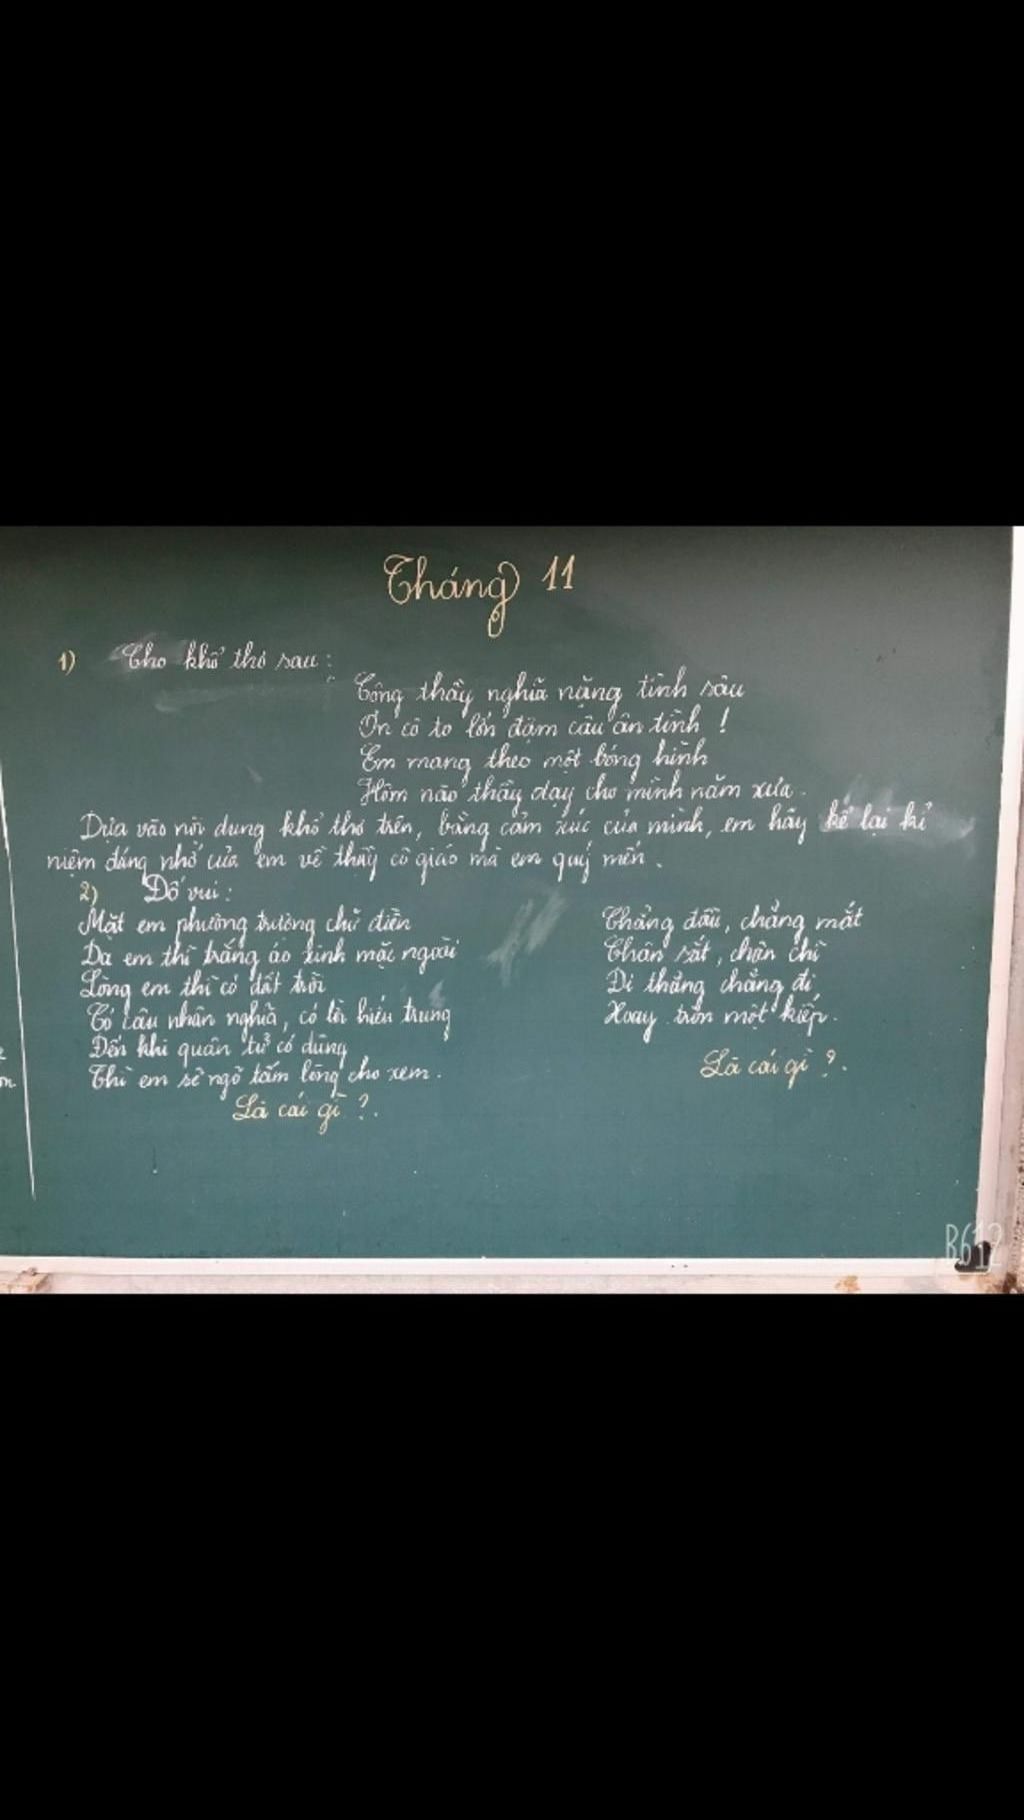 Tháng 11
1) Cho khổ thơ sau:
Công thầy nghĩa nặng tình sâu
Ơn cô to lớn đậm câu ân tình!
Em mang theo một bóng hình
Hôm nào thầy dạy cho mình năm xưa.
Dựa vào nội dung khổ thơ trên, bằng cảm xúc của mình, em hãy kể lại kỉ
niệm đáng nhớ của em về thầy cô giáo mà em quý mến.
2) Đố vui:
Mặt em phương trường chữ điền
Da em thì trắng áo xinh mặc ngoài
Lòng em thì có đất trời
Có câu nhân nghĩa, có lời hiếu trung
Đến khi quân tử có dùng
Thì em sẽ ngỏ tấm lòng cho xem.
Là cái gì?.
Chẳng đầu, chẳng mắt
Thân sắt, chân chì
Đi thẳng chẳng đi
Xoay tròn một kiếp.
Là cái gì?.
B612